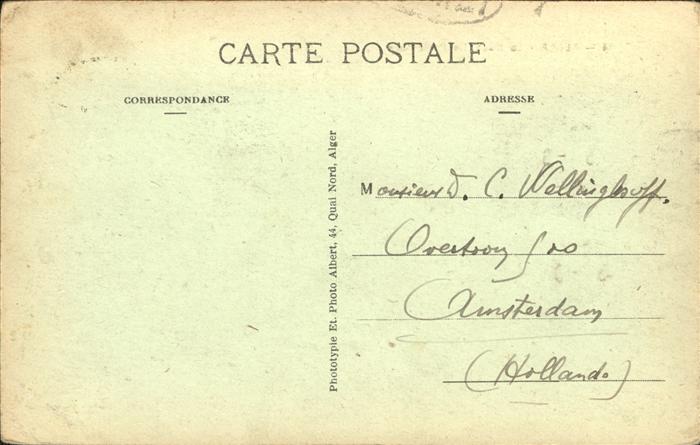 CARTE POSTALE
CORRESPONDANCE
ADRESSE
Phototypie Et. Photo Albert, 44, Quai Nord, Alger
Monsieur D. C. Wellinghoff.
Overtoom
Amsterdam
(Hollande)